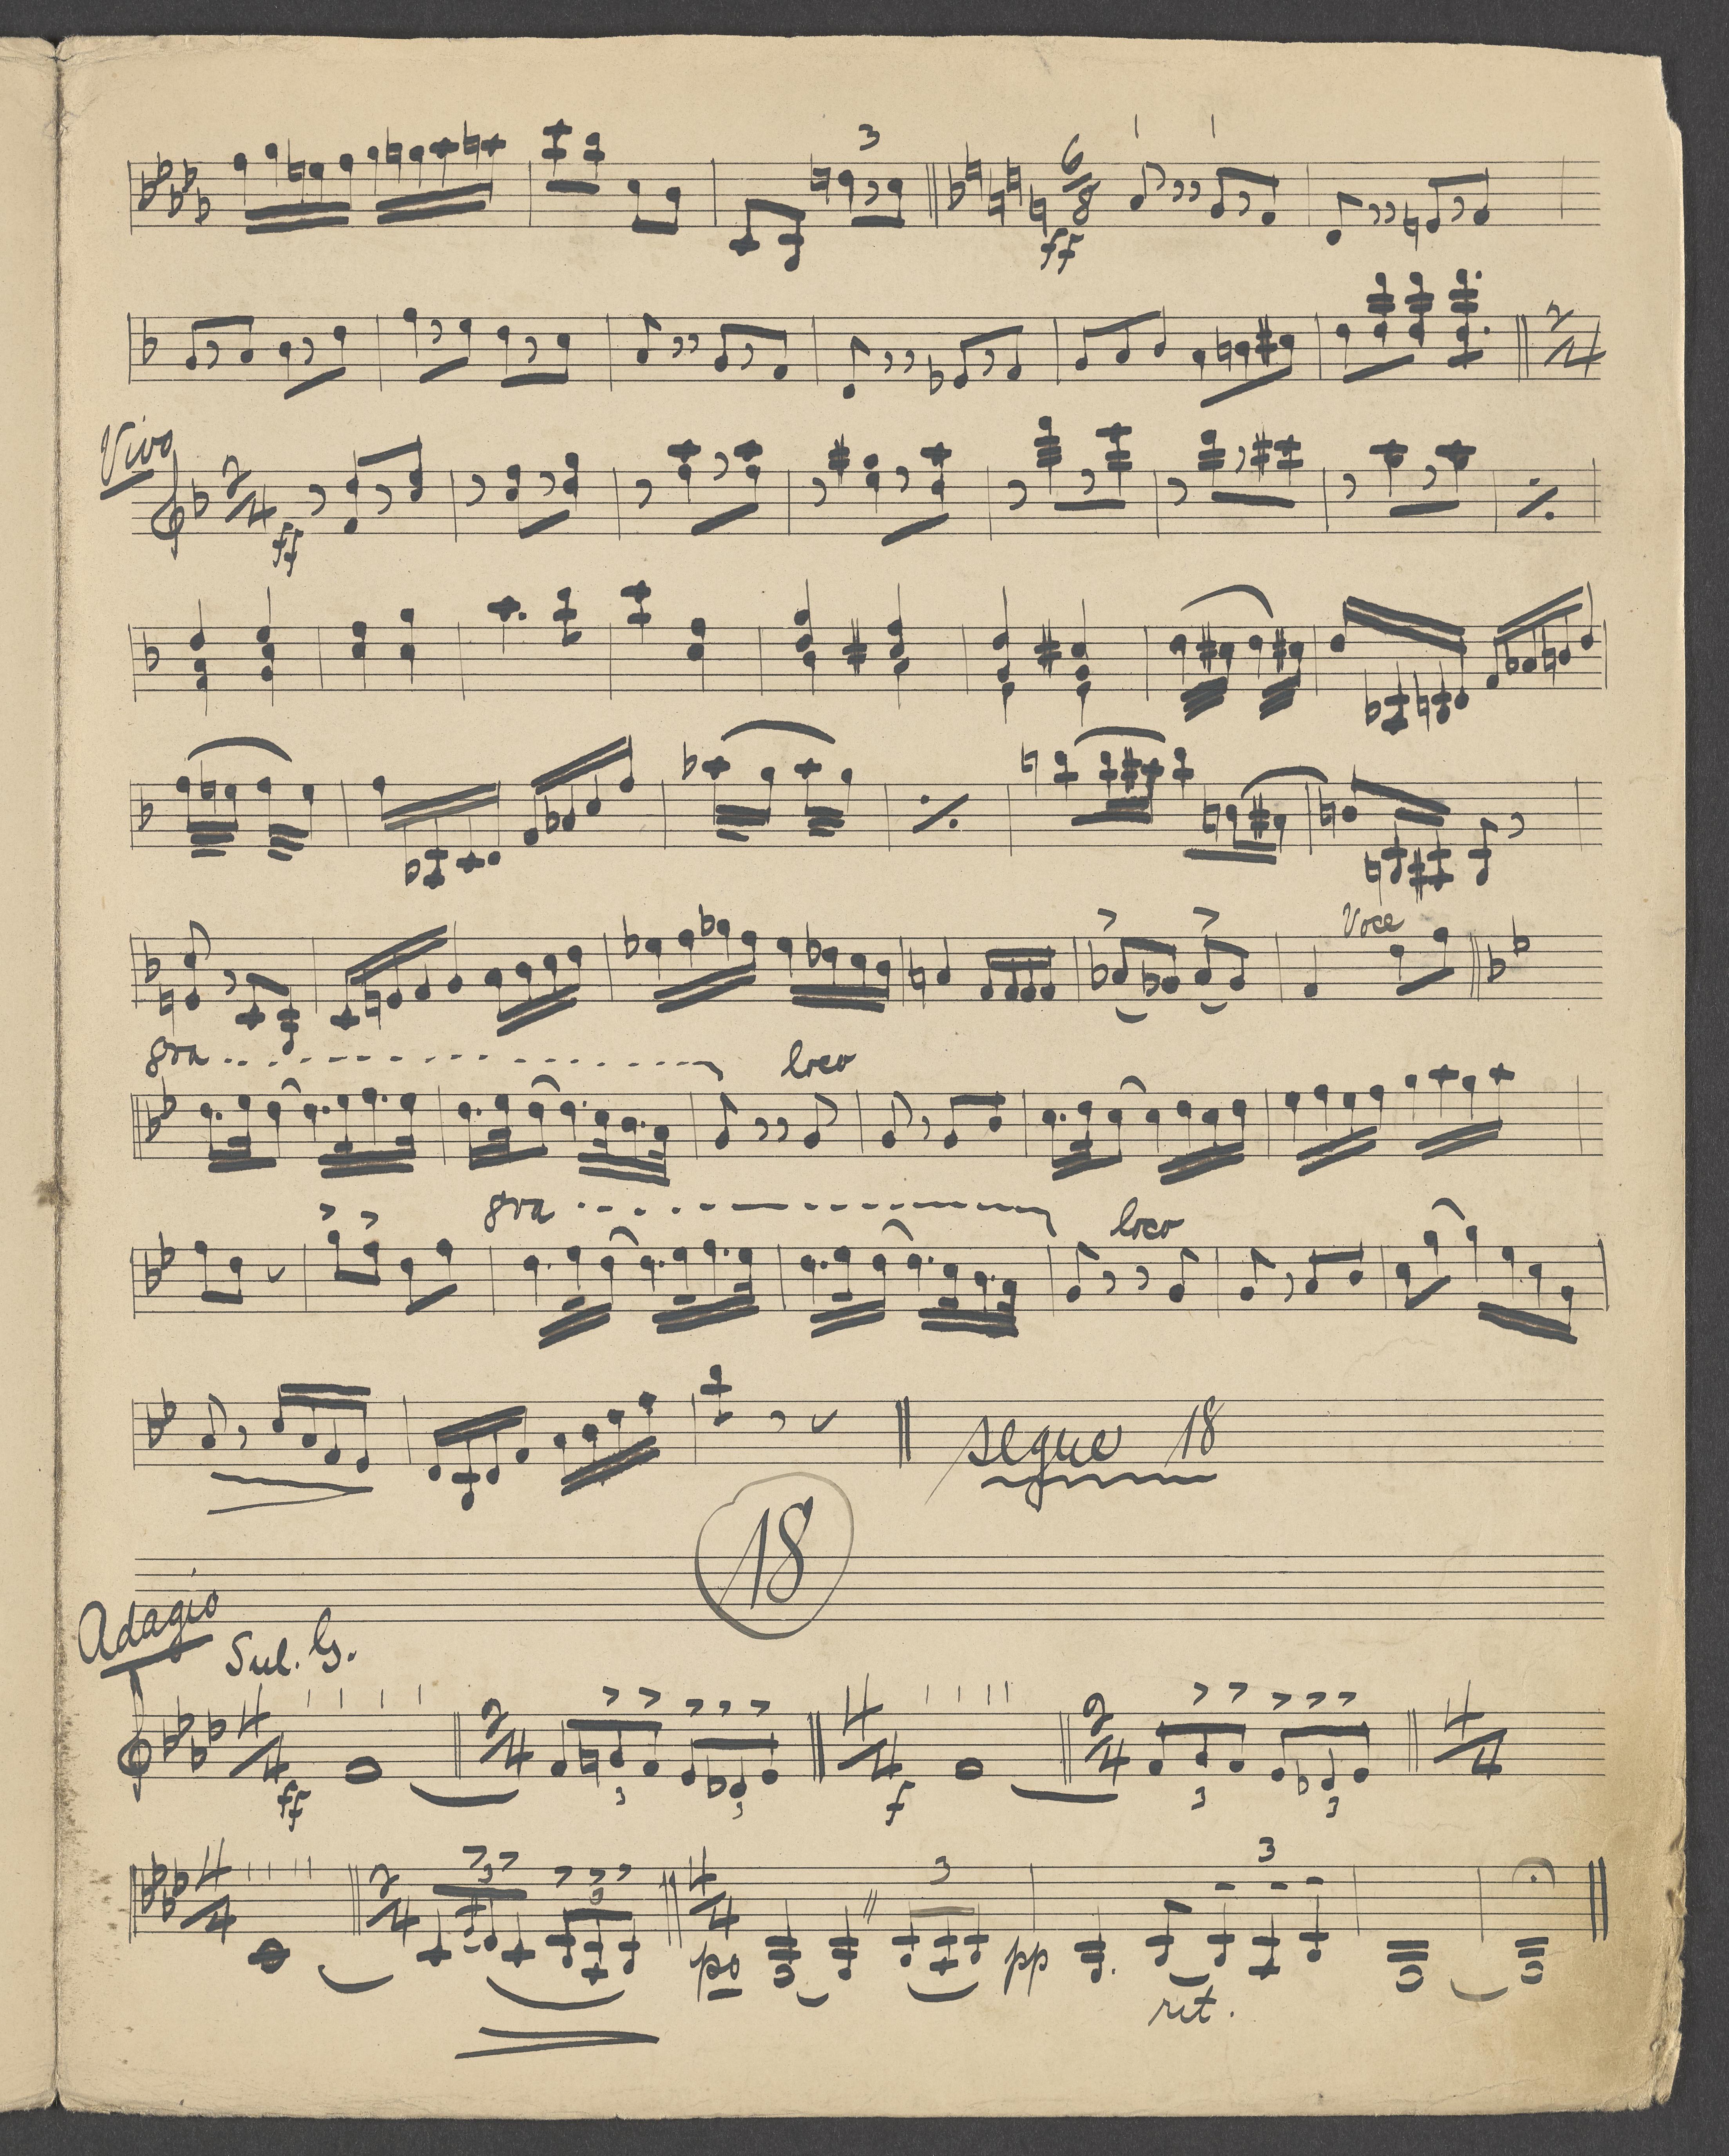 3
6/8
ff
2/4
Vivo
2/4
ff
Voce
8va loco
8va loco
segue 18
18
Adagio
Sul. G.
4/4 2/4 4/4 2/4 4/4
ff 3 3 f 3 3
4/4 2/4 3 3 4/4 3 3
po pp
rit.